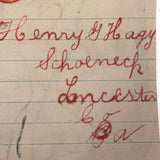 Henry G Hagy
Schoeneck
Lancester
Pa